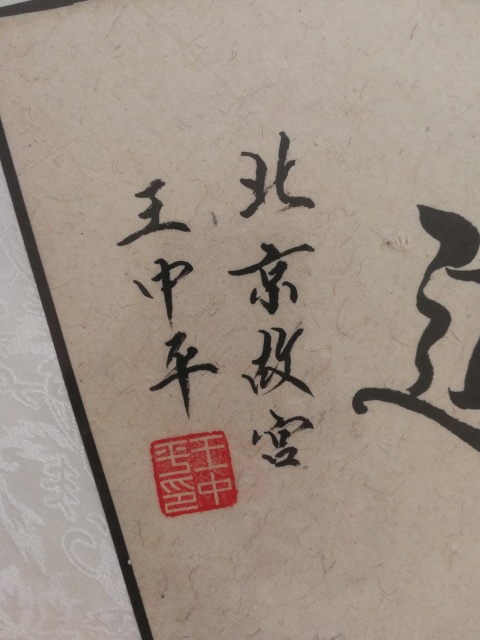 北京故宫
王中平
王中平印